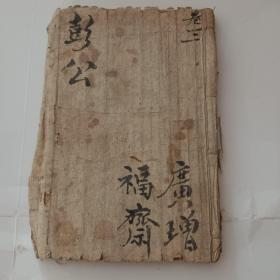 卷三
彭公
廣增
福齋